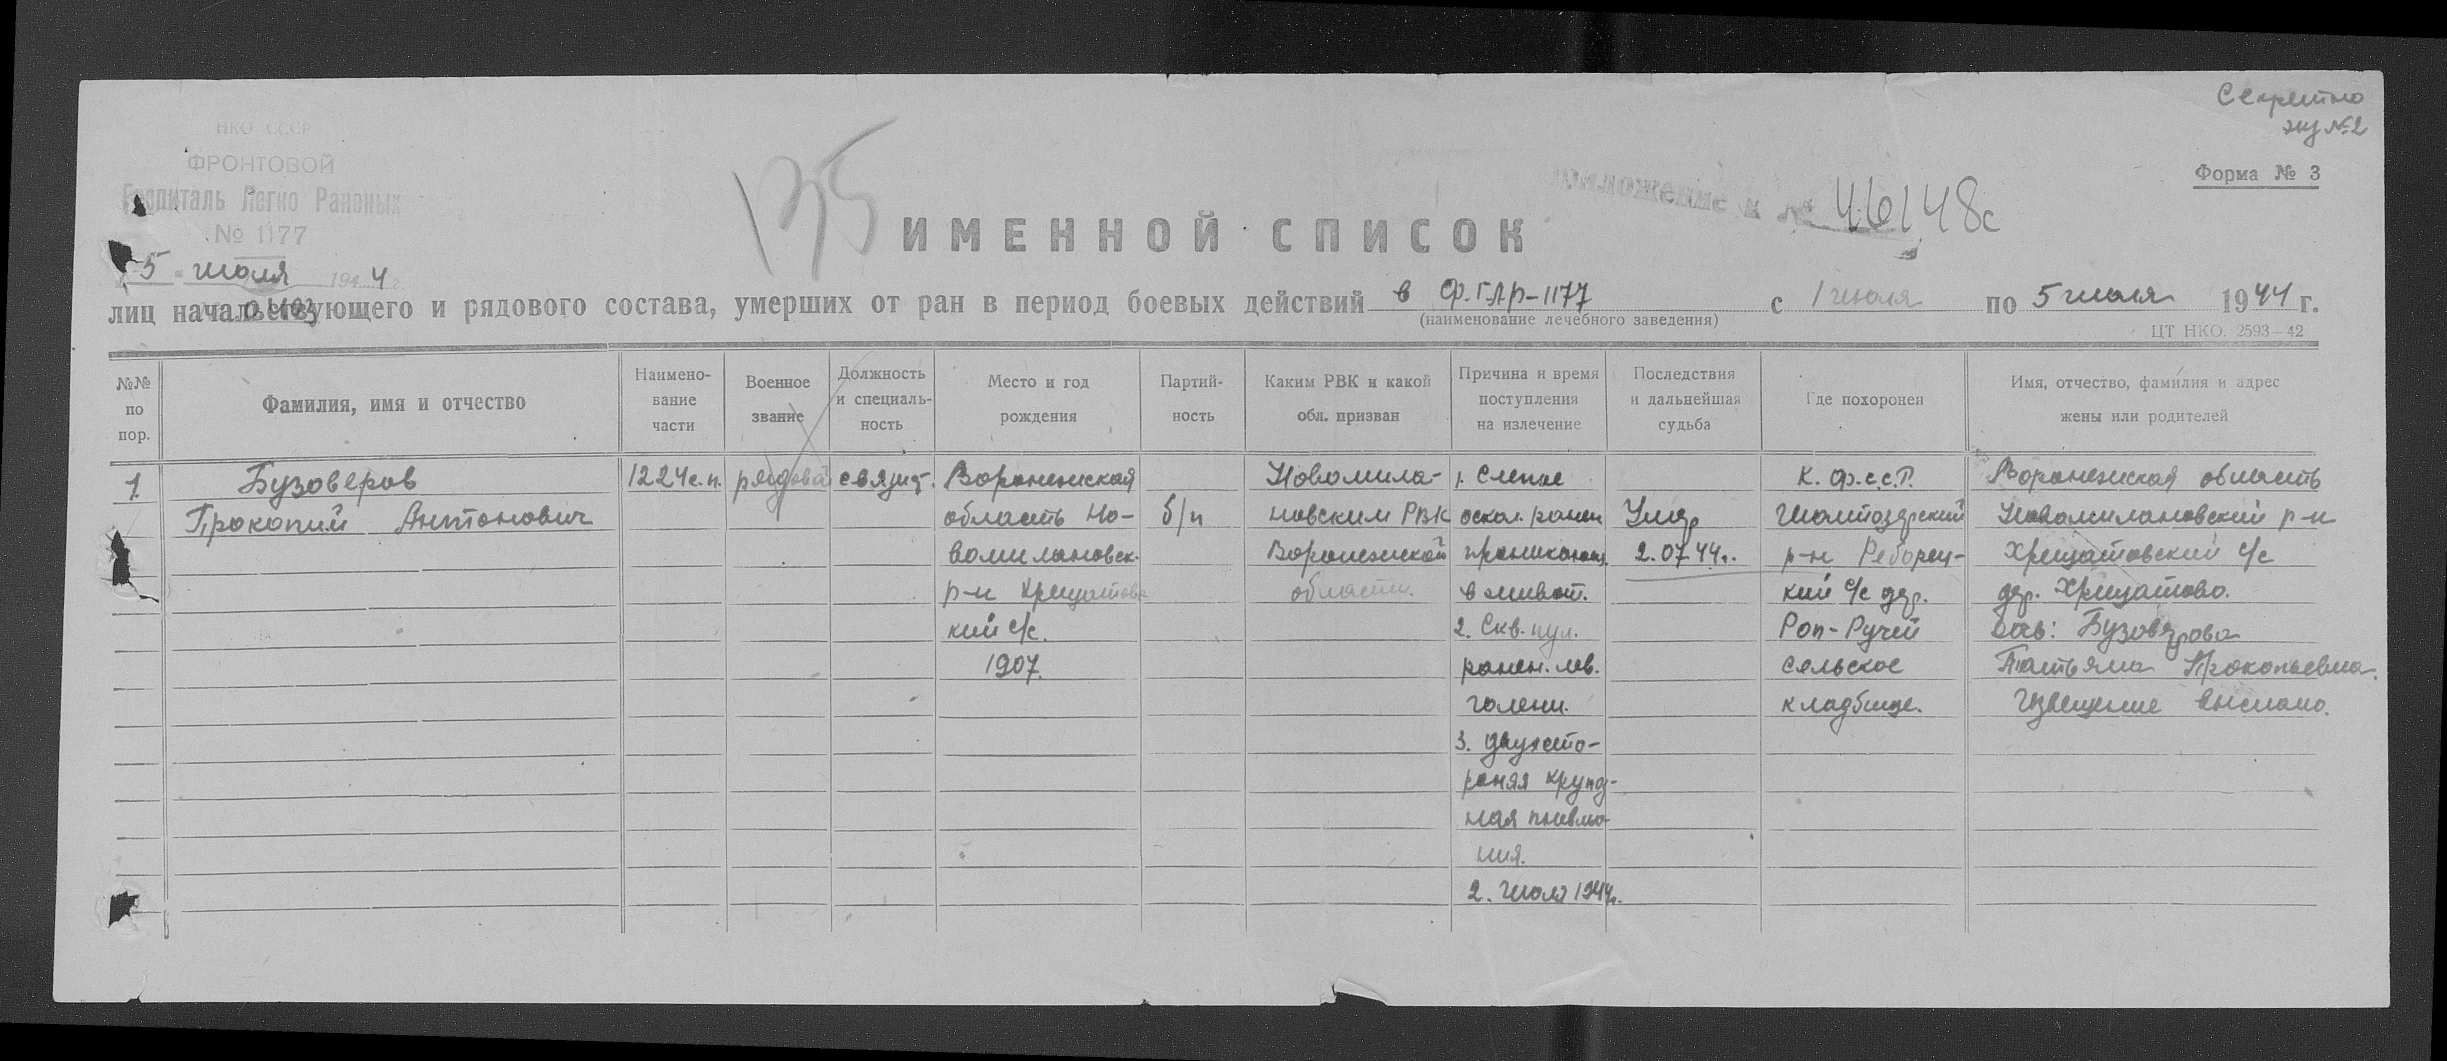 Секретно
экз № 2
Форма № 3
НКО СССР
ФРОНТОВОЙ
Госпиталь Легко Раненых
№ 1177
5 июля 1944 г.
0403
135
Приложение к № 46148с
ИМЕННОЙ СПИСОК
лиц начальствующего и рядового состава, умерших от ран в период боевых действий в Ф.ГЛР-1177 с 1 июля по 5 июля 1944 г.
(наименование лечебного заведения)
ЦТ НКО. 2593—42
№№ по пор.
Фамилия, имя и отчество
Наимено-
вание
части
Военное
звание
Должность
и специаль-
ность
Место и год
рождения
Партий-
ность
Каким РВК и какой
обл. призван
Причина и время
поступления
на излечение
Последствия
и дальнейшая
судьба
Где похоронен
Имя, отчество, фамилия и адрес
жены или родителей
1.
Бузоверов
Прокопий Антонович
1224 с.п.
рядовой
связист.
Воронежская
область Но-
вомилановск.
р-н Хрещатовс
кий с/с.
1907.
б/п
Новомила-
новским РВК
Воронежской
области.
1. Слепое
оскол. ранен
проникающ.
в живот.
2. Скв. пул.
ранен. лев.
голени.
3. Двухсто-
роняя крупоз-
ная пневмо-
ния.
2. июля 1944г.
Умер
2.07.44г.
К.Ф.С.С.Р.
Шолтозерский
р-н Реборец-
кий с/с дер.
Роп-Ручей
сельское
кладбище.
Воронежская область
Новомилановский р-н
Хрещатовский с/с
дер. Хрещатово.
Бузоверова
Татьяна Прокопьевна.
Извещение выслано.